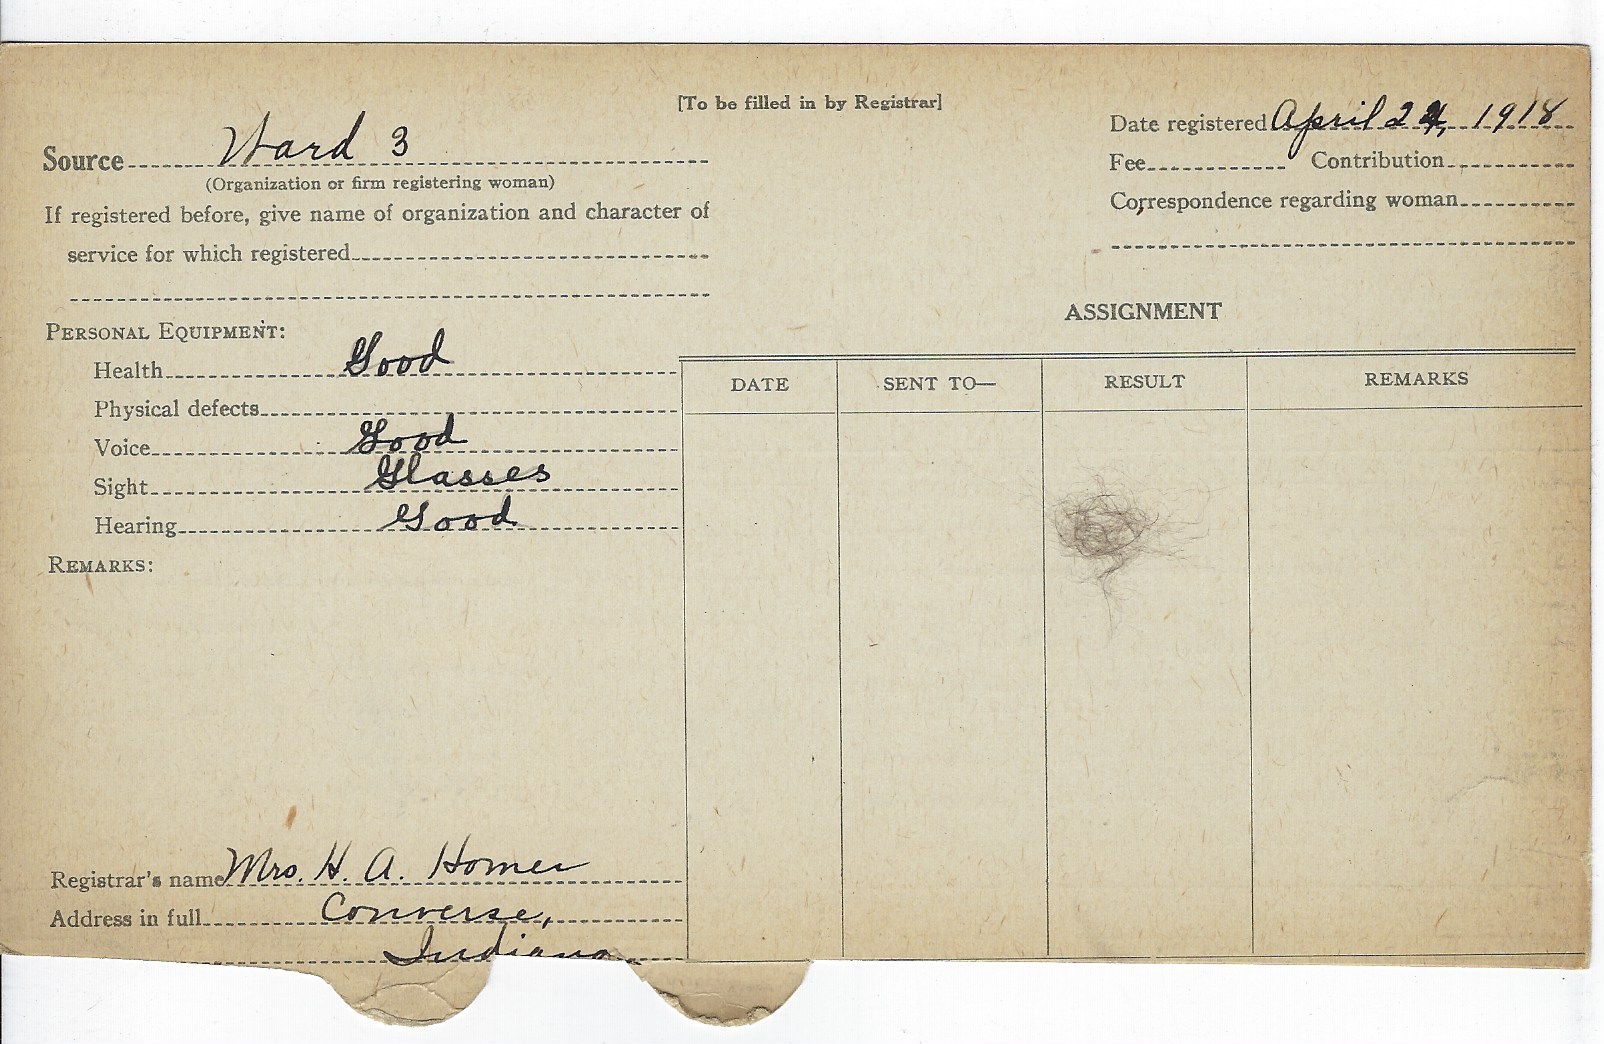 [To be filled in by Registrar]
Date registered April 24, 1918
Source Ward 3
(Organization or firm registering woman)
Fee Contribution
If registered before, give name of organization and character of
service for which registered
Correspondence regarding woman
PERSONAL EQUIPMENT:
Health Good
Physical defects
Voice Good
Sight Glasses
Hearing Good
REMARKS:
ASSIGNMENT
DATE SENT TO— RESULT REMARKS
Registrar's name Mrs. H. A. Homer
Address in full Converse,
Indiana